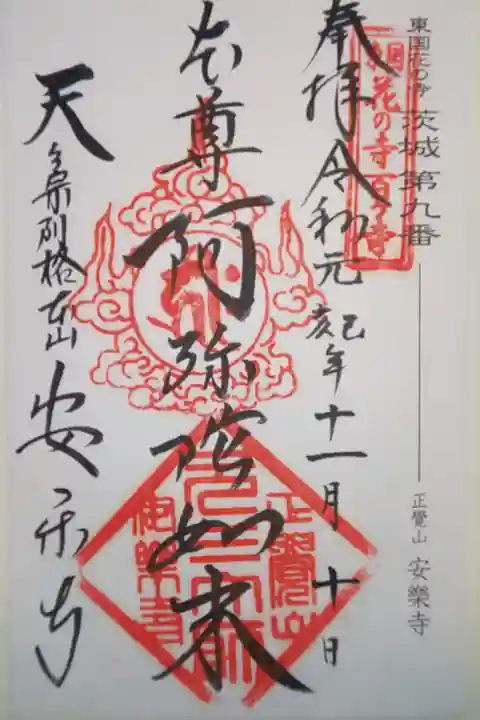 東国花の寺 茨城第九番 正覺山 安樂寺
花の寺百ケ寺
奉拝 令和元己亥年十一月十日
本尊阿弥陀如来
正覺山
安樂寺
天台宗別格本山 安楽寺